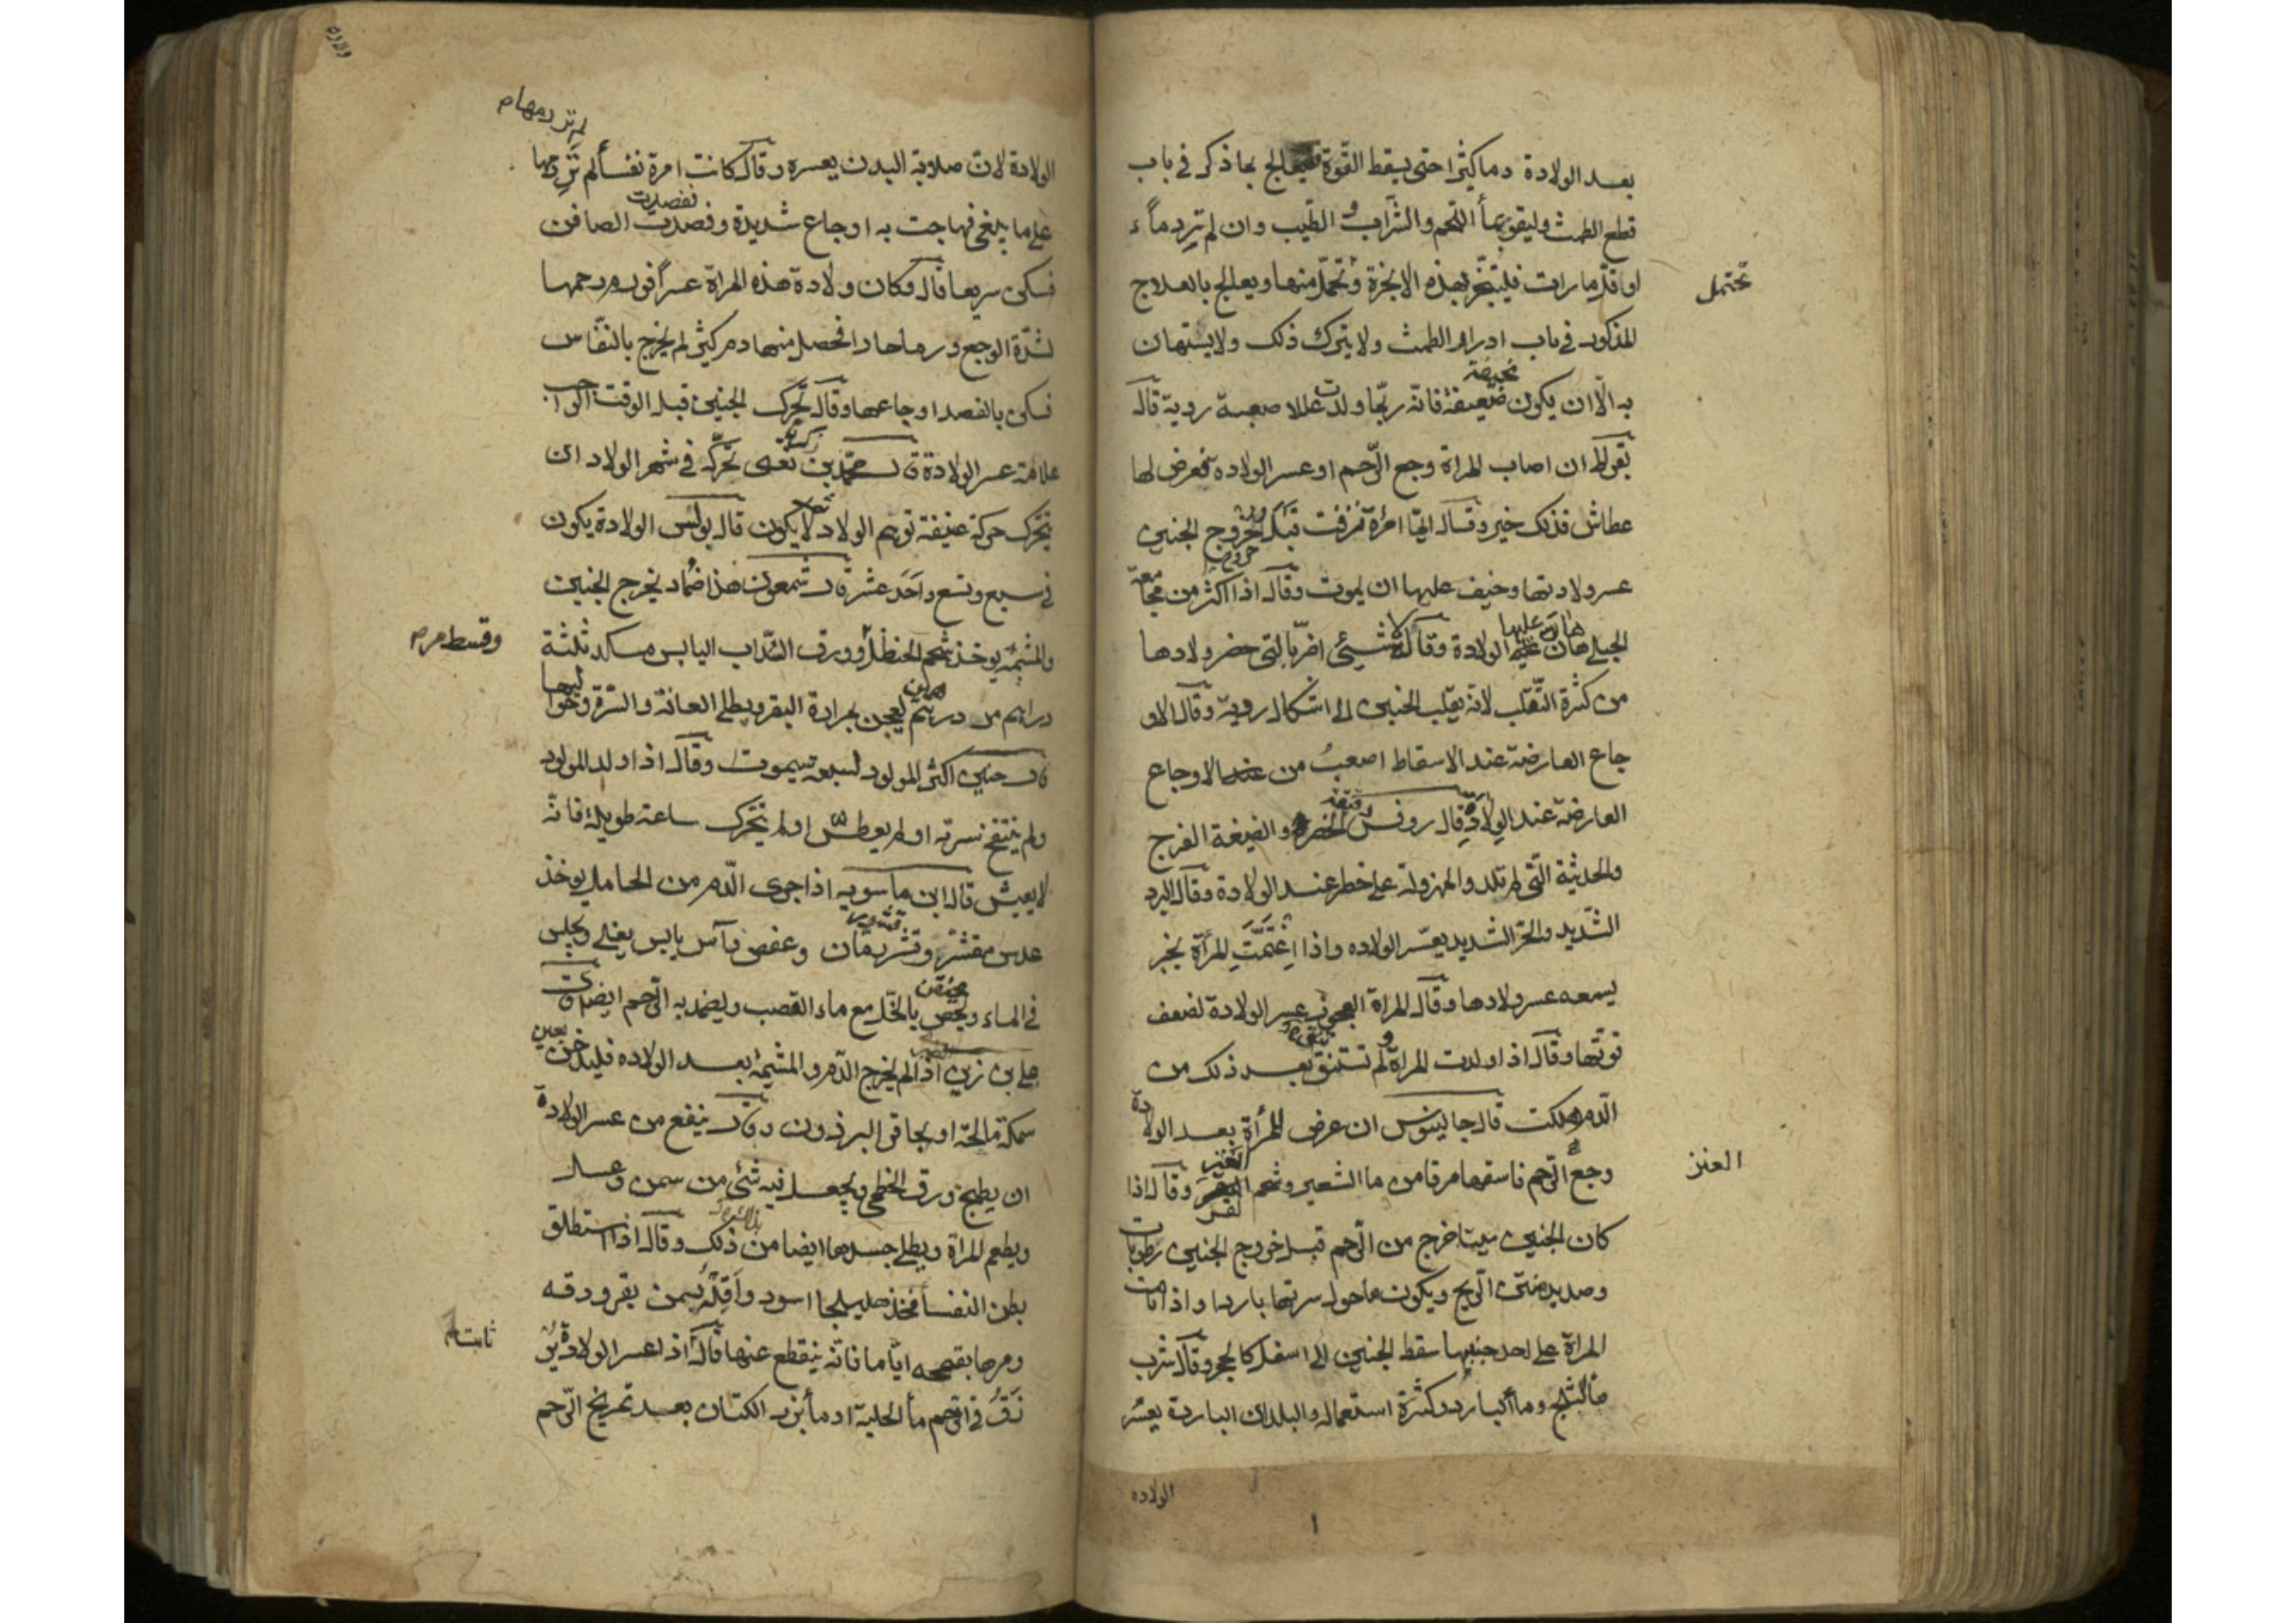 بعد الولادة دما كثيرا حتى يسقط القوة فيعالج بما ذكر في باب
قطع الطمث وليقو بمأ اللحم والشراب الطيب وان لم تر دماً
او اقل ما رات فليتبخر بهذه الابخرة وتحمل منها ويعالج بالعلاج
تحتمل
المذكور في باب ادرار الطمث ولا يترك ذلك ولا يستهان
نحيفة
به الا ان يكون ضعيفة فانه ربما ولدت عللا صعبة ردية قال
بقراط ان اصاب المراة وجع الرحم او عسر الولاده فعرض لها
عطاش فذلك خير وقال ايما امرأة نزفت قبل خروج الجنين
عسر ولادتها وخيف عليها ان يموت وقال اذا اكثر من مجامعة
الحبلى هان عليها الولادة وقال لا شيئ اضر بالتي حضر ولادها
من كثرة التقلب لانه يقلب الجنين الى اشكال ردية وقال الاو
جاع العارضة عند الاسقاط اصعب من الاوجاع
العارضة عند الولادة قال روفس والضيقة الفرج
والحدثية التي لم تلد والمهزولة على خطر عند الولادة وقال البرد
الشديد والحر الشديد يعسر الولاده واذا اغتمت المرأة بخبر
يسمعه عسر ولادها وقال المراة العجوز عسر الولادة لضعف
قوتها وقال اذا ولدت المراة ولم تستنق بعد ذلك من
الدم هلكت قال جالينوس ان عرض للمرأة بعد الولادة
وجع الرحم فاسقها مرقا من ما الشعير وشحم وقال اذا
العنز
كان الجنين ميتا خرج من الرحم قبل خروج الجنين رطوبات
وصديد منتن الريح ويكون ما حول سرتها باردا واذا نامت
المراة على احد جنبيها سقط الجنين الى اسفل كالحجر وقال شرب
مأ الثلج ومأ البارد وكثرة استعماله والبلدان الباردة يعسر
الولاده
ولاده
لم تر دمها م
الولادة لان صلابة البدن يعسره وقال كانت امرة نفسأ لم تر دمها
على ما ينبغي فهاجت به اوجاع شديدة وفصدت الصافن
فسكن سريعا قال وكان ولادة هذه المراة عسرا فورم رحمها
لشدة الوجع ورما حادا فحصل منها دم كثير لم يخرج بالنفاس
فسكن بالفصد اوجاعها وقال تحرك الجنين قبل الوقت الواجب
علامة عسر الولادة قال محمد بن زكريا تحركه في شهر الولاد ان
يتحرك حركة عنيفة توهم الولاد ثم لا يكون قال بولس الولادة يكون
في سبع وتسع واحد عشرة قال شمعون هذا ضماد يخرج الجنين
والمشيمة يوخذ شحم الحنظل وورق السذاب اليابس من كل ثلثة
وقسط مر م
دراهم مر درهم يعجن بمرارة البقر ويطلى العانة والسرة وحواليها
قال حنين اكثر المولود لسبعة يموت وقال اذا ولد المولود
ولم ينتفخ سرته او لم يعطس او لم يتحرك ساعة طويلة فانه
لا يعيش قال ابن ماسويه اذا جرى الدم من الحامل يوخذ
عدس مقشر وقشر رمان وعفص وآس يابس يغلى ويجلس
في الماء وبالخل مع ماء القصب وليضمد به الرحم ايضا قال
علي بن زين اذا لم يخرج الدم والمشيمة بعد الولاده فليدخن بعين
سمكة مالحة او بحافر البرذون وقال ينفع من عسر الولادة
ان يطبخ ورق الخطمي ويجعل فيه شئ من سمن وعسل
ويطعم المراة ويطلى جسدها ايضا من ذلك وقال اذا استطلق
بطن النفسأ فخذ هليلجا اسود واقله بسمن بقر ودقه
ومرها بقمحه اياما فانه ينقطع عنها قال اذا عسر الولادة
زرق في الرحم مأ الحلبة او مأ بزر الكتان بعد تمريخ الرحم